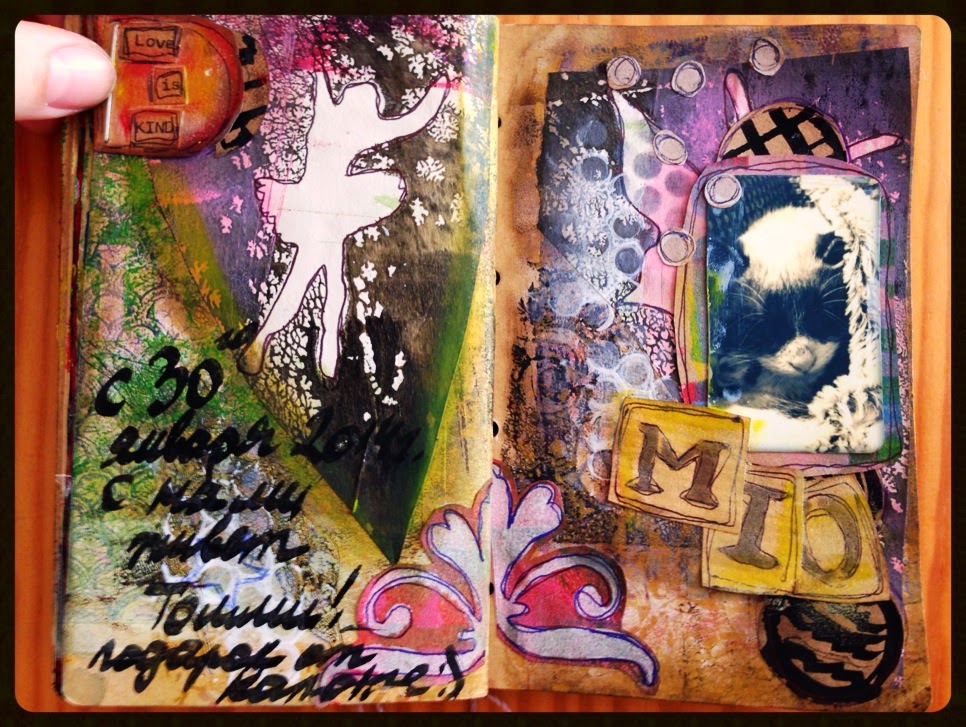 LOVE
is
KIND
с 30
января 2014г.
с нами
живет
Томми!
подарок от
MIO